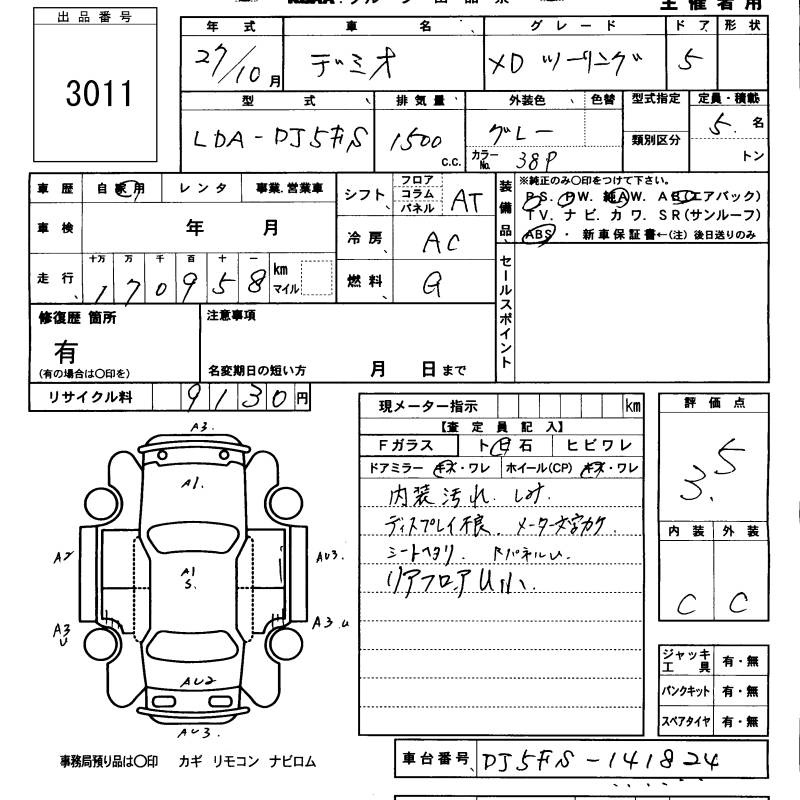 主催者用
出品番号
3011
年式 車名 グレード ドア 形状
27/10月 デミオ XD ツーリング 5
型式 排気量 外装色 色替 型式指定 定員・積載
LDA-DJ5FS 1500 c.c. グレー 類別区分 5 名
カラーNo. 38P トン
車歴 自家用 レンタ 事業.営業車
車検 年 月
走行 十万 万 千 百 十 一
170958 km マイル
シフト フロア コラム パネル AT
冷房 AC
燃料 G
装備品
※純正のみ〇印をつけて下さい。
P.S. P.W. 純AW. AB(エアバック)
TV. ナビ. カワ. SR(サンルーフ)
ABS ・ 新車保証書←(注) 後日送りのみ
セールスポイント
修復歴 箇所
有
(有の場合は〇印を)
注意事項
名変期日の短い方 月 日まで
リサイクル料 9130円
現メーター指示 km
【査定員記入】
Fガラス ト日石 ヒビワレ
ドアミラー キズ・ワレ ホイール(CP) キズ・ワレ
内装汚れ. シミ.
ディスプレイ不良. メーター文字カケ.
シートヘタリ. RパネルU.
リアフロアU小.
評価点
3.5
内装 外装
C C
ジャッキ工具 有・無
パンクキット 有・無
スペアタイヤ 有・無
A3.
A1.
A2
A1
S.
AU3.
A3
U
A3.U
AU2
AU3.
事務局預り品は〇印 カギ リモコン ナビロム
車台番号 DJ5FS-141824